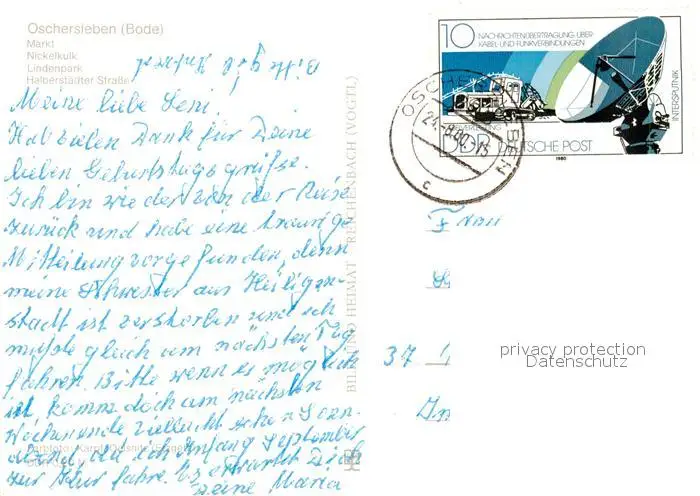 Oschersleben (Bode)
Markt
Nickelkulk
Lindenpark
Halberstädter Straße
Meine liebe Leni.
Hab vielen Dank für Deine
lieben Geburtstagsgrüsse.
Ich bin wieder von der Reise
zurück und habe eine traurige
Mitteilung vorgefunden, denn
meine Schwester aus Heiligen-
stadt ist verstorben und ich
mußte gleich am nächsten Tag
fahren. Bitte wenn es möglich
ist komm doch am nächsten
Wochenende vielleicht schon Sonn-
abend, da ich Anfang September
zur Kur fahre. Es erwartet Dich
Deine Maria
BILD UND HEIMAT REICHENBACH (VOGTL)
10 NACHRICHTENÜBERTRAGUNG ÜBER
KABEL- UND FUNKVERBINDUNGEN
INTERSPUTNIK
DDR DEUTSCHE POST
1980
OSCHERSLEBEN
c
Frau
37
privacy protection
Datenschutz